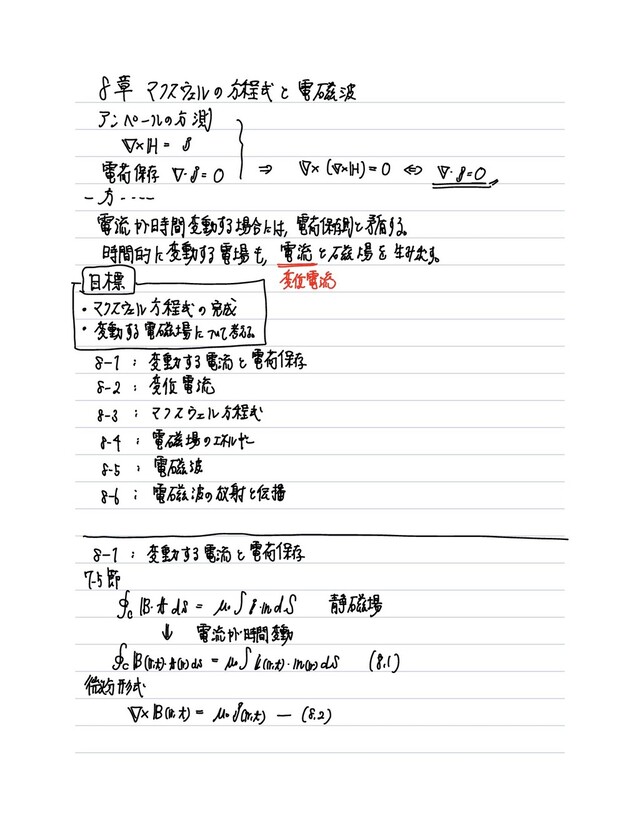 8章 マクスウェルの方程式と電磁波
アンペールの方測
∇×H = j
電荷保存 ∇·j=0 ⇒ ∇×(∇×H)=0 ⇔ ∇·j=0
一方・・・・・
電流が時間変動する場合には,電荷保存則と矛盾する。
時間的に変動する電場も,電流と磁場を生み出す。
変位電流
目標
・マクスウェル方程式の完成
・変動する電磁場について考える。
8-1 : 変動する電流と電荷保存
8-2 : 変位電流
8-3 : マクスウェル方程式
8-4 : 電磁場のエネルギー
8-5 : 電磁波
8-6 : 電磁波の放射と伝播
8-1 : 変動する電流と電荷保存
7-5節
∮c B·t ds = μ₀∫ i·n dS 静磁場
↓ 電流が時間変動
∮c B(r,t)·t(r) ds = μ₀∫ i(r,t)·n(r) dS (8.1)
微分形式
∇×B(r,t) = μ₀ j(r,t) — (8.2)